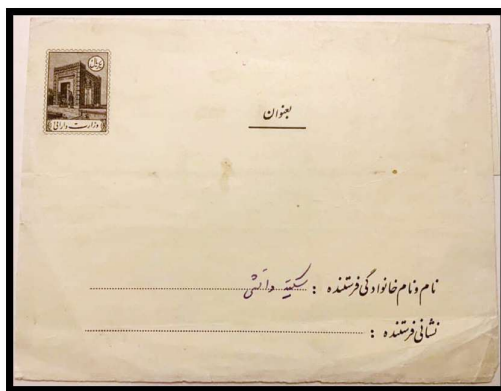 وزارت دارائی
بعنوان
نام و نام خانوادگی فرستنده : سکینه دانشی
نشانی فرستنده :